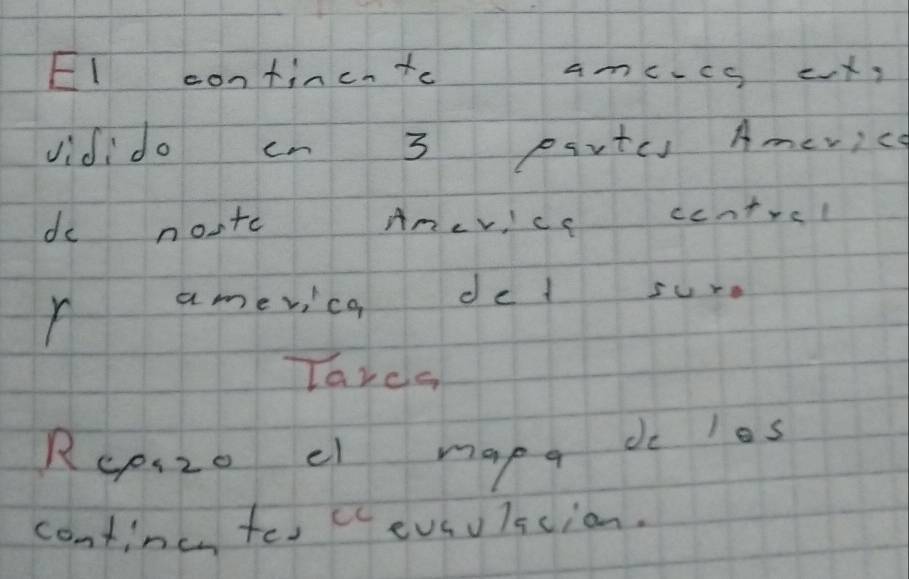 El continente america esta
vidido en 3 partes America
de norte America central
y america del sur.
Tarea
Repazo el mapa de los
continentes “evaulacion.